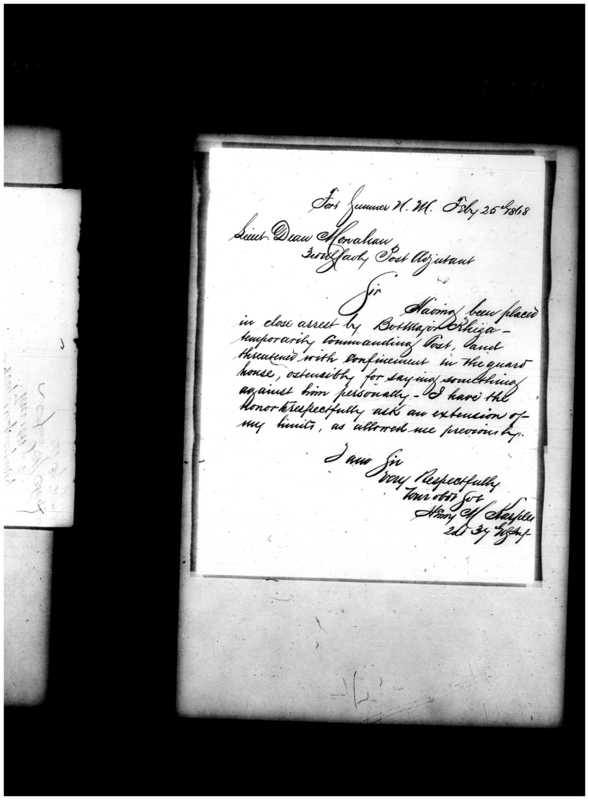 Fort Sumner N. M. Feby 25th 1868
Lieut. Deane Monahan
3rd Cavly Post Adjutant
Sir
Having been placed
in close arrest by Bvt Major
temporarily Commanding Post, and
threatened with confinement in the guard
house, ostensibly for saying something
against him personally - I have the
honor to respectfully ask an extension of
my limits, as allowed me previously.
I am Sir
Very Respectfully
Your obdt Svt
2d Lt 37th Inf.